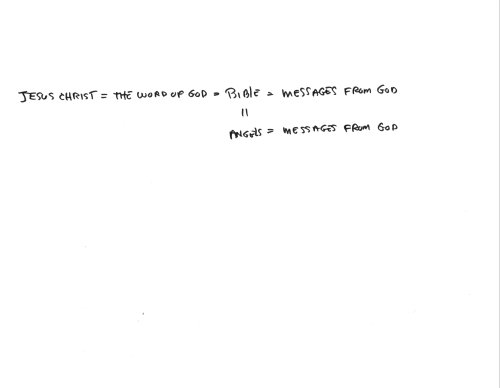 JESUS CHRIST = THE WORD OF GOD = BIBLE = MESSAGES FROM GOD
=
ANGELS = MESSAGES FROM GOD